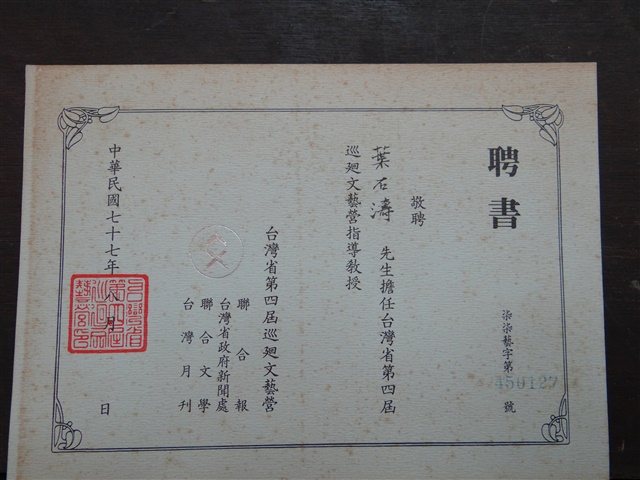 聘書
柒柒藝字第 450127 號
敬聘
葉石濤 先生擔任台灣省第四屆
巡廻文藝營指導教授
台灣省第四屆巡廻文藝營
聯合報
台灣省政府新聞處
聯合文學
台灣月刊
中華民國七十七年八月 日